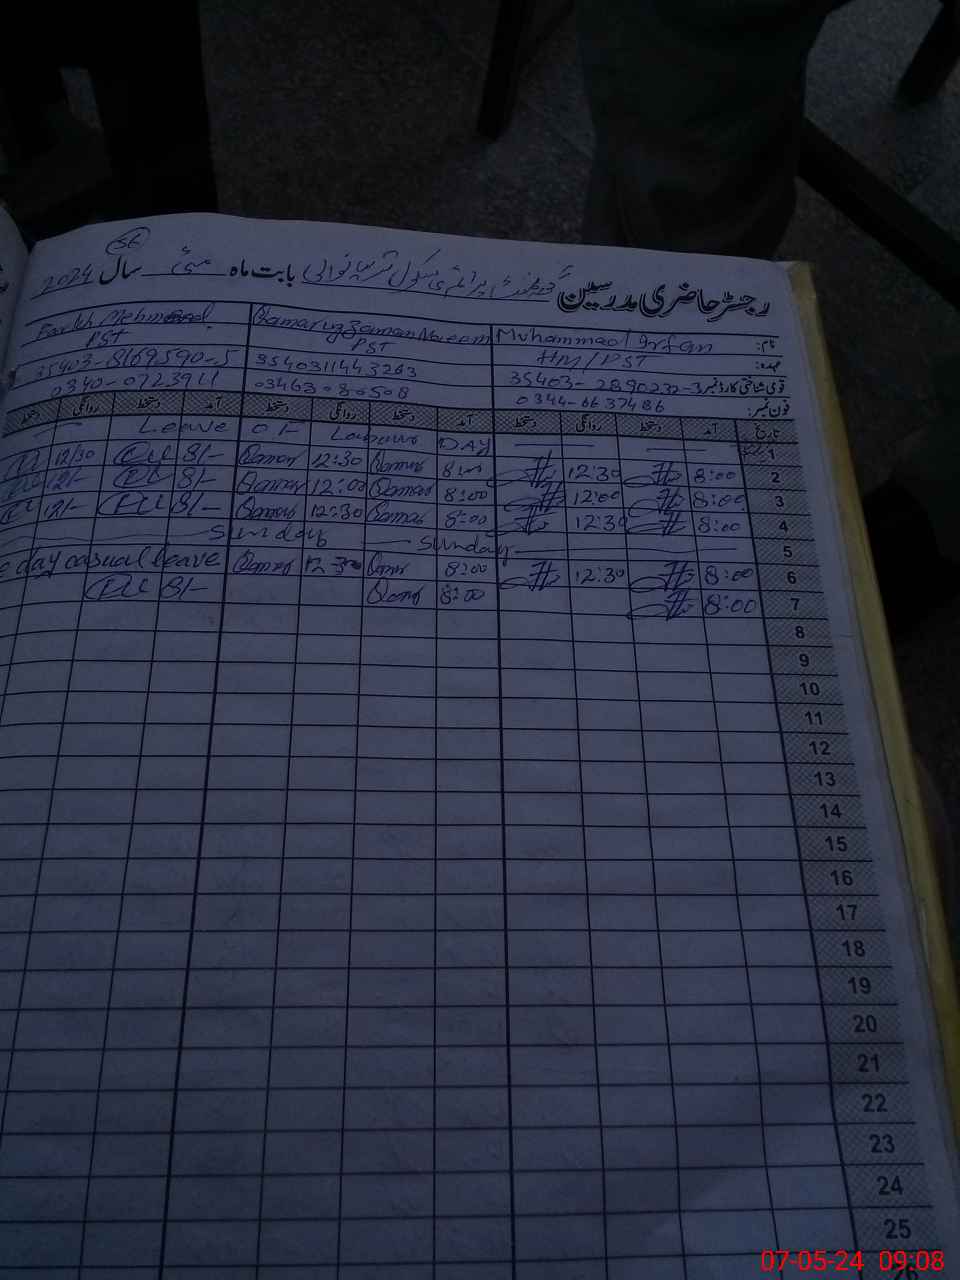 56
رجسٹر حاضری مدرسین گورنمنٹ پرائمری سکول بابت ماہ مئی سال 2024
نام: Muhammad Irfan Qamar uz Zaman Naeem Mehmood
عہدہ: HM/PST PST PST
قومی شناختی کارڈ نمبر: 35403-2890232-3 3540311443263 35403-8169590-5
فون نمبر: 0344-6637486 03463080508 0340-0723911
تاریخ آمد دستخط روانگی دستخط آمد دستخط روانگی دستخط آمد دستخط روانگی دستخط
1 Leave OF Labour DAY
2 8:00 12:30 Qamar 12:30 Qamar 8/- 12/30
3 8:00 12:00 8:00 Qamar 12:00 Qamar 8/- 12/-
4 8:00 12:30 8:00 Qamar 12:30 Qamar 8/- 12/-
5 Sunday Sunday
6 8:00 12:30 8:00 Qamar 12:30 Qamar day casual leave
7 8:00 8:00 Qamar 8/-
8
9
10
11
12
13
14
15
16
17
18
19
20
21
22
23
24
25
26
07-05-24 09:08